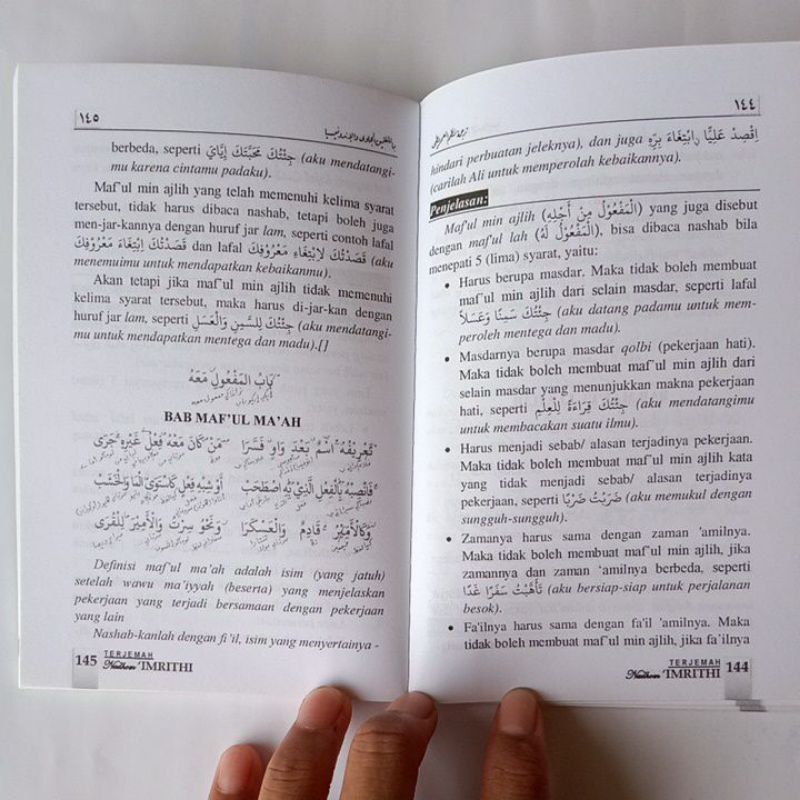 ١٤٤
اِقْصِدْ عَلِيًّا ابْتِغَاءَ بِرِّهِ
hindari perbuatan jeleknya), dan juga
(carilah Ali untuk memperolah kebaikannya).
Penjelasan:
Maf'ul min ajlih (الْمَفْعُوْلُ مِنْ أَجْلِهِ) yang juga disebut
dengan maf'ul lah (الْمَفْعُوْلُ لَهُ), bisa dibaca nashab bila
menepati 5 (lima) syarat, yaitu:
• Harus berupa masdar. Maka tidak boleh membuat
maf'ul min ajlih dari selain masdar, seperti lafal
جِئْتُكَ سَمِنًا وَعَسَلاً (aku datang padamu untuk mem-
peroleh mentega dan madu).
• Masdarnya berupa masdar qolbi (pekerjaan hati).
Maka tidak boleh membuat maf'ul min ajlih dari
selain masdar yang menunjukkan makna pekerjaan
hati, seperti جِئْتُكَ قِرَاءَةً لِلْعِلْمِ (aku mendatangimu
untuk membacakan suatu ilmu).
• Harus menjadi sebab/ alasan terjadinya pekerjaan.
Maka tidak boleh membuat maf'ul min ajlih kata
yang tidak menjadi sebab/ alasan terjadinya
pekerjaan, seperti ضَرَبْتُ ضَرْبًا (aku memukul dengan
sungguh-sungguh).
• Zamanya harus sama dengan zaman 'amilnya.
Maka tidak boleh membuat maf'ul min ajlih, jika
zamannya dan zaman 'amilnya berbeda, seperti
تَأَهَّبْتُ سَفَرًا غَدًا (aku bersiap-siap untuk perjalanan
besok).
• Fa'ilnya harus sama dengan fa'il 'amilnya. Maka
tidak boleh membuat maf'ul min ajlih, jika fa'ilnya
TERJEMAH
Nadhom 'IMRITHI 144
١٤٥
berbeda, seperti جِئْتُكَ مَحَبَّتَكَ إِيَّايَ (aku mendatangi-
mu karena cintamu padaku).
Maf'ul min ajlih yang telah memenuhi kelima syarat
tersebut, tidak harus dibaca nashab, tetapi boleh juga
men-jar-kannya dengan huruf jar lam, seperti contoh lafal
قَصَدْتُكَ ابْتِغَاءَ مَعْرُوْفِكَ dan lafal قَصَدْتُكَ لاِبْتِغَاءِ مَعْرُوْفِكَ (aku
menemuimu untuk mendapatkan kebaikanmu).
Akan tetapi jika maf'ul min ajlih tidak memenuhi
kelima syarat tersebut, maka harus di-jar-kan dengan
huruf jar lam, seperti جِئْتُكَ لِلسَّمِنِ وَالْعَسَلِ (aku mendatangi-
mu untuk mendapatkan mentega dan madu).[]
بَابُ الْمَفْعُوْلِ مَعَهُ
BAB MAF'UL MA'AH
تَعْرِيْفُهُ اسْمٌ بَعْدَ وَاوٍ فَسَّرَا مَنْ كَانَ مَعْهُ فِعْلُ غَيْرِهِ جَرَى
فَانْصِبْهُ بِالْفِعْلِ الَّذِيْ بِهِ اصْطَحَبْ أَوْ شِبْهِ فِعْلٍ كَاسْتَوَى الْمَا وَالْخَشَبْ
وَكَالْأَمِيْرُ قَادِمٌ وَالْعَسْكَرَا وَنَحْوُ سِرْتُ وَالْأَمِيْرَ لِلْقُرَى
Definisi maf'ul ma'ah adalah isim (yang jatuh)
setelah wawu ma'iyyah (beserta) yang menjelaskan
pekerjaan yang terjadi bersamaan dengan pekerjaan
yang lain
Nashab-kanlah dengan fi'il, isim yang menyertainya -
145 TERJEMAH
Nadhom 'IMRITHI